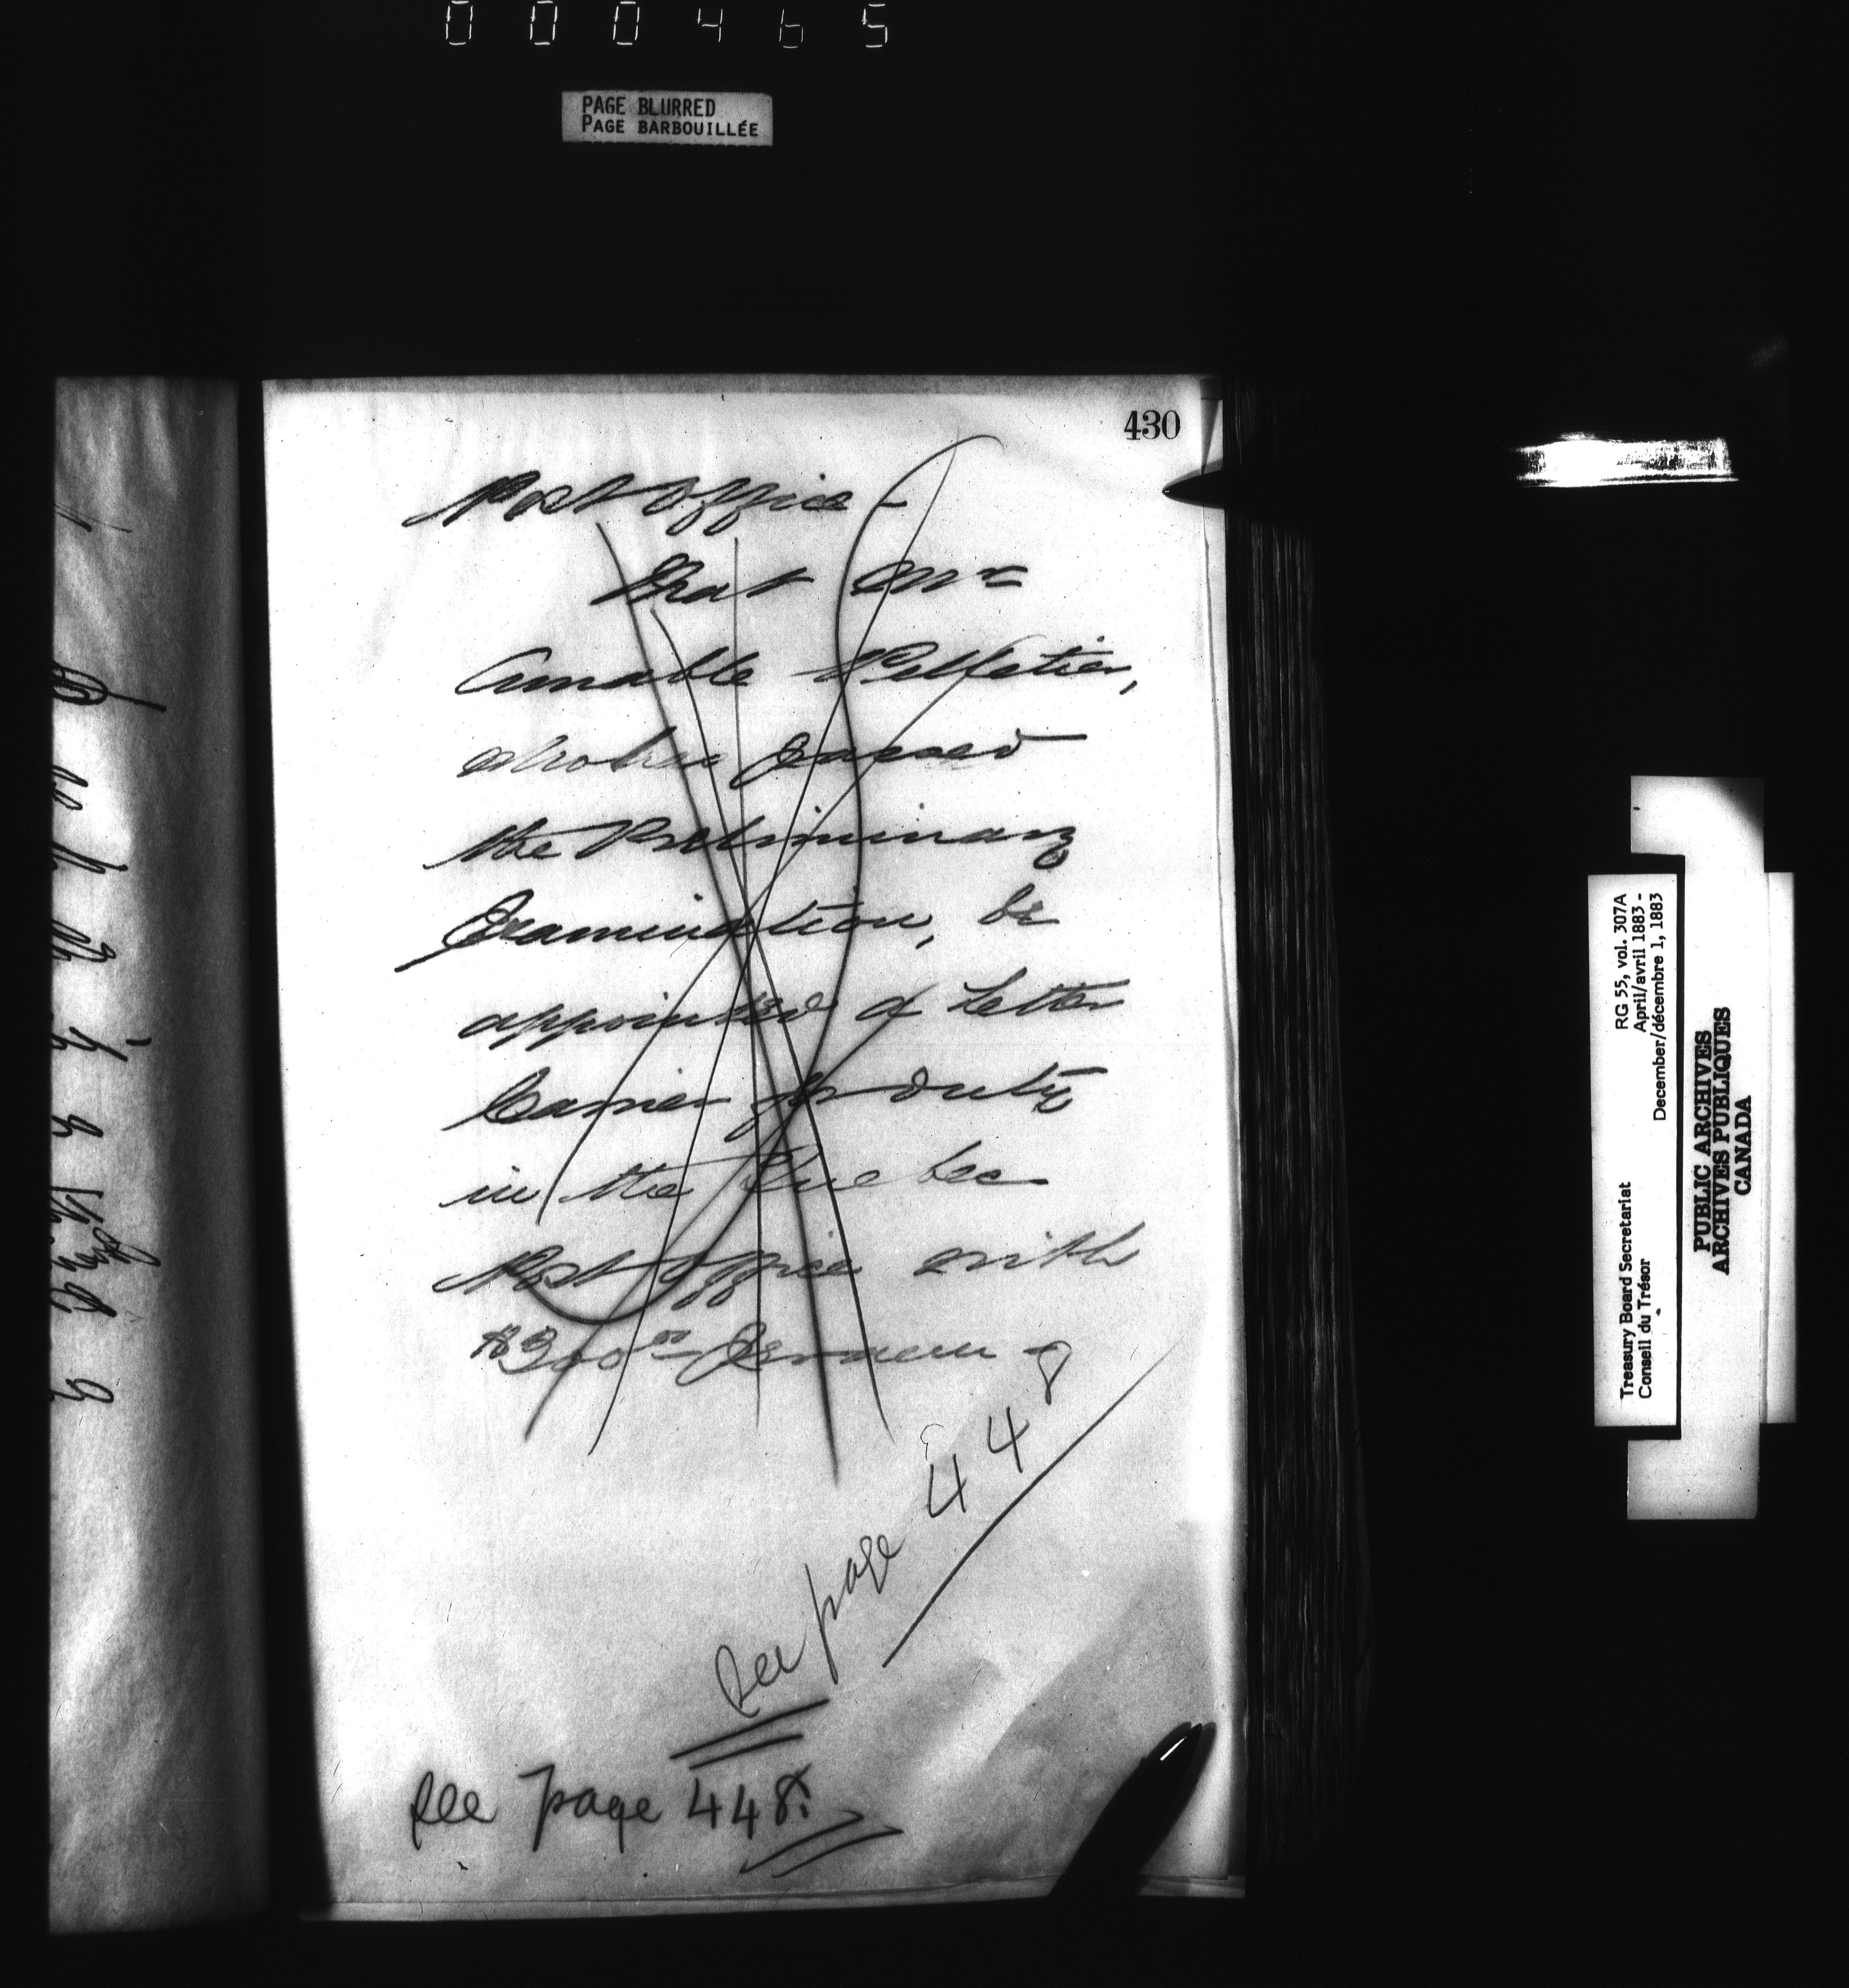 000465
PAGE BLURRED
PAGE BARBOUILLÉE
430
Post Office -
That Mr
Amable Pelletier,
who has passed
the Preliminary
Examination, be
appointed a Letter
Carrier for duty
in the Quebec
Post Office with
$300 00 per annum
See page 448
See page 448.
RG 55, vol. 307A
April/avril 1883 -
December/décembre 1, 1883
Treasury Board Secretariat
Conseil du Trésor
PUBLIC ARCHIVES
ARCHIVES PUBLIQUES
CANADA